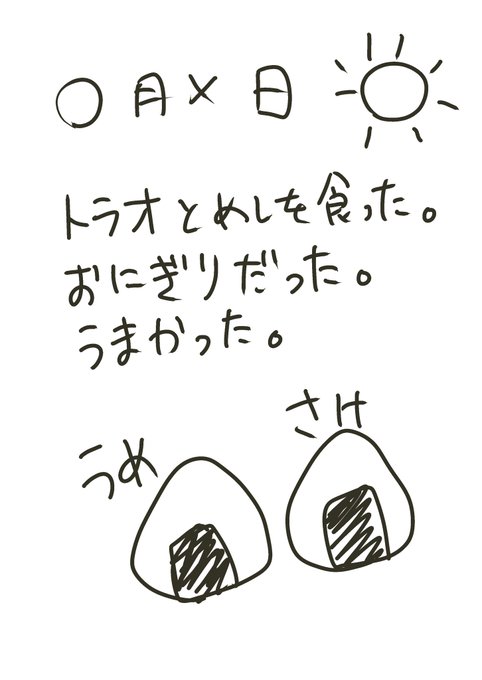 〇月×日
トラオとめしを食った。
おにぎりだった。
うまかった。
うめ
さけ